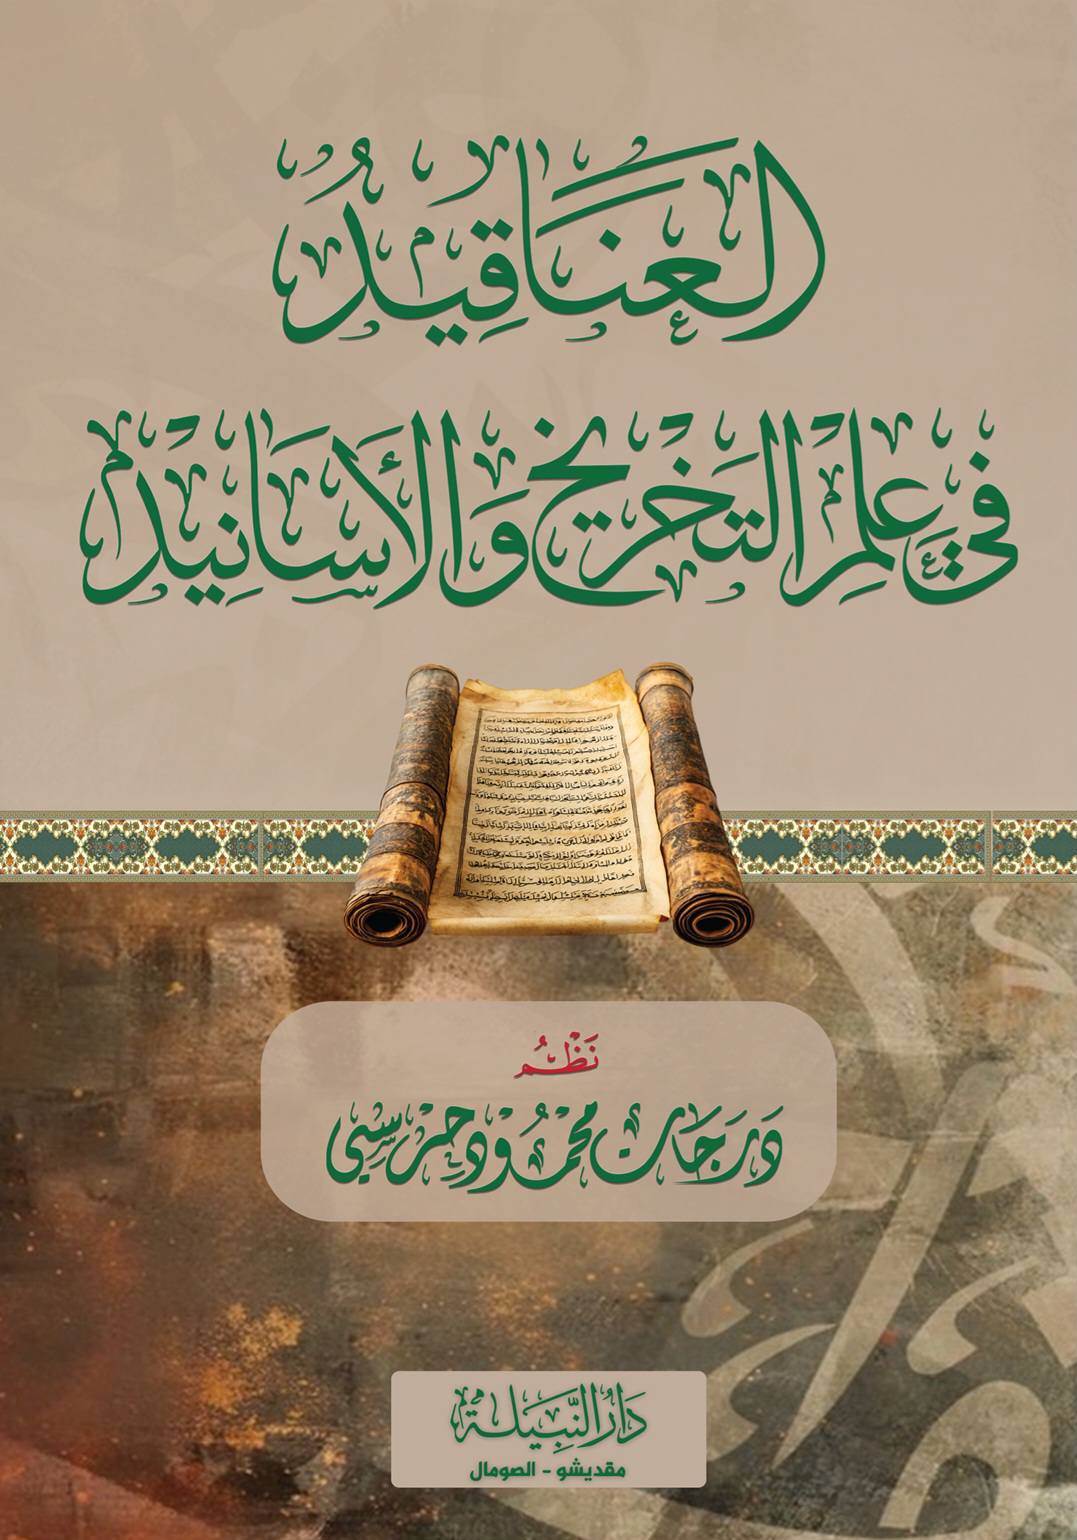 العَنَاقِيدُ
فِي عِلْمِ التَّخْرِيْجِ وَالأَسَانِيْدِ
نَظْمُ
دَرَجَات مُحَمُود حِرْسِي
دَارُ النَّبِيلَة
مقديشو - الصومال